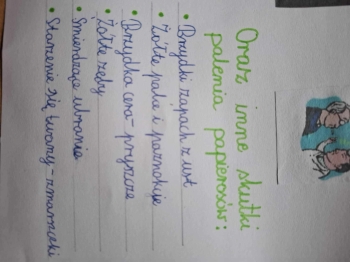 Oraz inne skutki
palenia papierosów:
• Brzydki zapach z ust
• Żółte palce i paznokcie
• Brzydka cera - pryszcze
• Żółte zęby
• Śmierdzące ubranie
• Starzenie się twarzy - zmarszczki